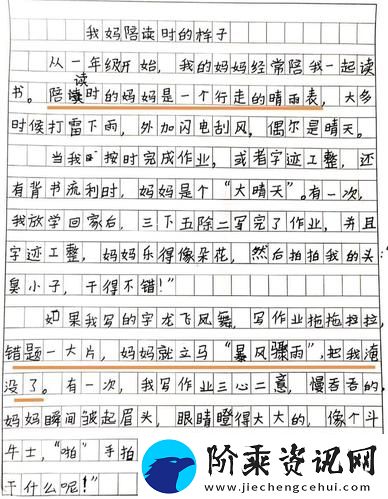 我妈陪读时的样子
从一年级开始，我的妈妈经常陪我一起读
书。陪读时的妈妈是一个行走的晴雨表，大多
读
时候打雷下雨，外加闪电刮风，偶尔是晴天。
当我时按时完成作业，或者字迹工整，还
有背书流利时，妈妈是个“大晴天”。有一次，
我放学回家后，三下五除二写完了作业，并且
字迹工整，妈妈乐得像朵花，然后拍拍我的头：“
臭小子，干得不错！”
如果我写的字龙飞凤舞，写作业拖拖拉拉，
错题一大片，妈妈就立马“暴风骤雨”，把我淹
没了。有一次，我写作业三心二意，慢吞吞的，
妈妈瞬间皱起眉头，眼睛瞪得大大的，像个斗
牛士，“啪”手拍
干什么呢！”
阶乘资讯网
www.jiechengcehui.com